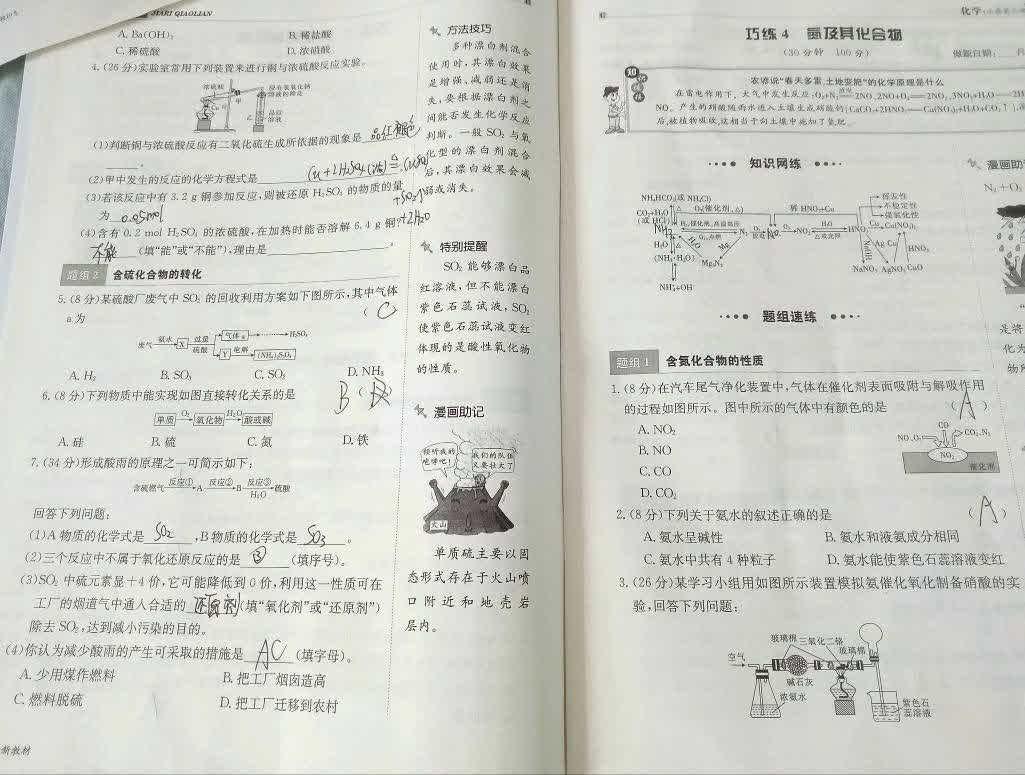 JIARI QIAOLIAN
A. Ba(OH)₂ B. 稀盐酸
C. 稀硫酸 D. 浓硝酸
4.(26分)实验室常用下列装置来进行铜与浓硫酸反应实验。
浓硫酸
甲
乙
品红
溶液
(1)判断铜与浓硫酸反应有二氧化硫生成所依据的现象是 品红褪色
。
(2)甲中发生的反应的化学方程式是 Cu+2H₂SO₄(浓)≜CuSO₄
+SO₂↑+2H₂O
(3)若该反应中有3.2 g铜参加反应,则被还原H₂SO₄的物质的量
为 0.05mol
(4)含有0.2 mol H₂SO₄的浓硫酸,在加热时能否溶解6.4 g铜:
不能 (填“能”或“不能”),理由是 。
题组2 含硫化合物的转化
5.(8分)某硫酸厂废气中SO₂的回收利用方案如下图所示,其中气体
a为 ( C
废气 氨水 X 过量 硫酸 气体a H₂SO₄
Y 电解 (NH₄)₂S₂O₈
A. H₂ B. SO₃ C. SO₂ D. NH₃
6.(8分)下列物质中能实现如图直接转化关系的是 B (
单质 O₂ 氧化物 H₂O 酸或碱
A. 硅 B. 硫 C. 氮 D. 铁
7.(34分)形成酸雨的原理之一可简示如下:
含硫燃气 反应① A 反应② B 反应③ H₂O 硫酸
回答下列问题:
(1)A物质的化学式是 SO₂ ,B物质的化学式是 SO₃ 。
(2)三个反应中不属于氧化还原反应的是 ③ (填序号)。
(3)SO₂中硫元素显+4价,它可能降低到0价,利用这一性质可在
工厂的烟道气中通入合适的 还原剂 (填“氧化剂”或“还原剂”)
除去SO₂,达到减小污染的目的。
(4)你认为减少酸雨的产生可采取的措施是 AC (填字母)。
A. 少用煤作燃料 B. 把工厂烟囱造高
C. 燃料脱硫 D. 把工厂迁移到农村
新教材
方法技巧
多种漂白剂混合
使用时,其漂白效果
是增强、减弱还是消
失,要根据漂白剂之
间能否发生化学反应
判断。一般SO₂与氧
化型的漂白剂混合
后,其漂白效果会减
弱或消失。
特别提醒
SO₂能够漂白品
红溶液,但不能漂白
紫色石蕊试液,SO₂
使紫色石蕊试液变红
体现的是酸性氧化物
的性质。
漫画助记
倾听我的
咆哮吧!
我们的队伍
又要壮大了
火山
单质硫主要以固
态形式存在于火山喷
口附近和地壳岩
层内。
化学
巧练4 氮及其化合物
(30分钟 100分)
做题日期:
农谚说“春天多雷,土地变肥”的化学原理是什么
在雷电作用下,大气中发生反应:O₂+N₂ 放电 2NO,2NO+O₂═2NO₂,3NO₂+H₂O═2H
NO。产生的硝酸随雨水进入土壤生成硝酸钙(CaCO₃+2HNO₃═Ca(NO₃)₂+H₂O+CO₂↑),
后,被植物吸收,这相当于向土壤中施加了氮肥。
知识网练
漫画助
N₂+O₂
NH₄HCO₃(或NH₄Cl) 挥发性
CO₂+H₂O O₂(催化剂,△) 稀HNO₃Cu 不稳定性
(或HCl) 强氧化性
NH₃ N₂ O₂ 放电 NO O₂ NO₂ H₂O HNO₃ Cu Cu(NO₃)₂
H₂O Mg △或光照 NaOH Ag Cu HNO₃
(NH₃·H₂O) Mg₃N₂ NaNO₃ AgNO₃ CuO
NH₄⁺+OH⁻
题组速练
题组1 含氮化合物的性质
1.(8分)在汽车尾气净化装置中,气体在催化剂表面吸附与解吸作用
的过程如图所示。图中所示的气体中有颜色的是 ( A )
A. NO₂
B. NO
C. CO
D. CO₂
CO
NO、O₂ CO₂、N₂
NO₂
催化剂
2.(8分)下列关于氨水的叙述正确的是 ( A )
A. 氨水呈碱性 B. 氨水和液氨成分相同
C. 氨水中共有4种粒子 D. 氨水能使紫色石蕊溶液变红
3.(26分)某学习小组用如图所示装置模拟氨催化氧化制备硝酸的实
验,回答下列问题:
玻璃棉 三氧化二铬
空气 玻璃棉
碱石灰
浓氨水
紫色石
蕊溶液
是将
化为
物所